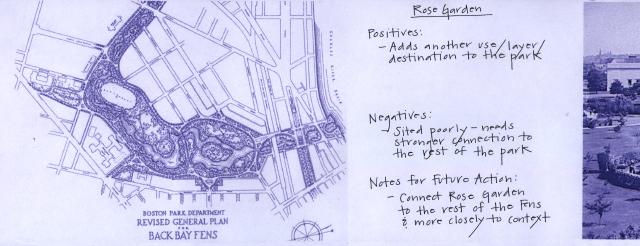 CHARLES RIVER BASIN
BOSTON PARK DEPARTMENT
REVISED GENERAL PLAN
FOR
BACK BAY FENS
Rose Garden
Positives:
- Adds another use/layer/
destination to the park
Negatives:
- Sited poorly - needs
stronger connection to
the rest of the park
Notes for Future Action:
- Connect Rose Garden
to the rest of the Fens
& more closely to context